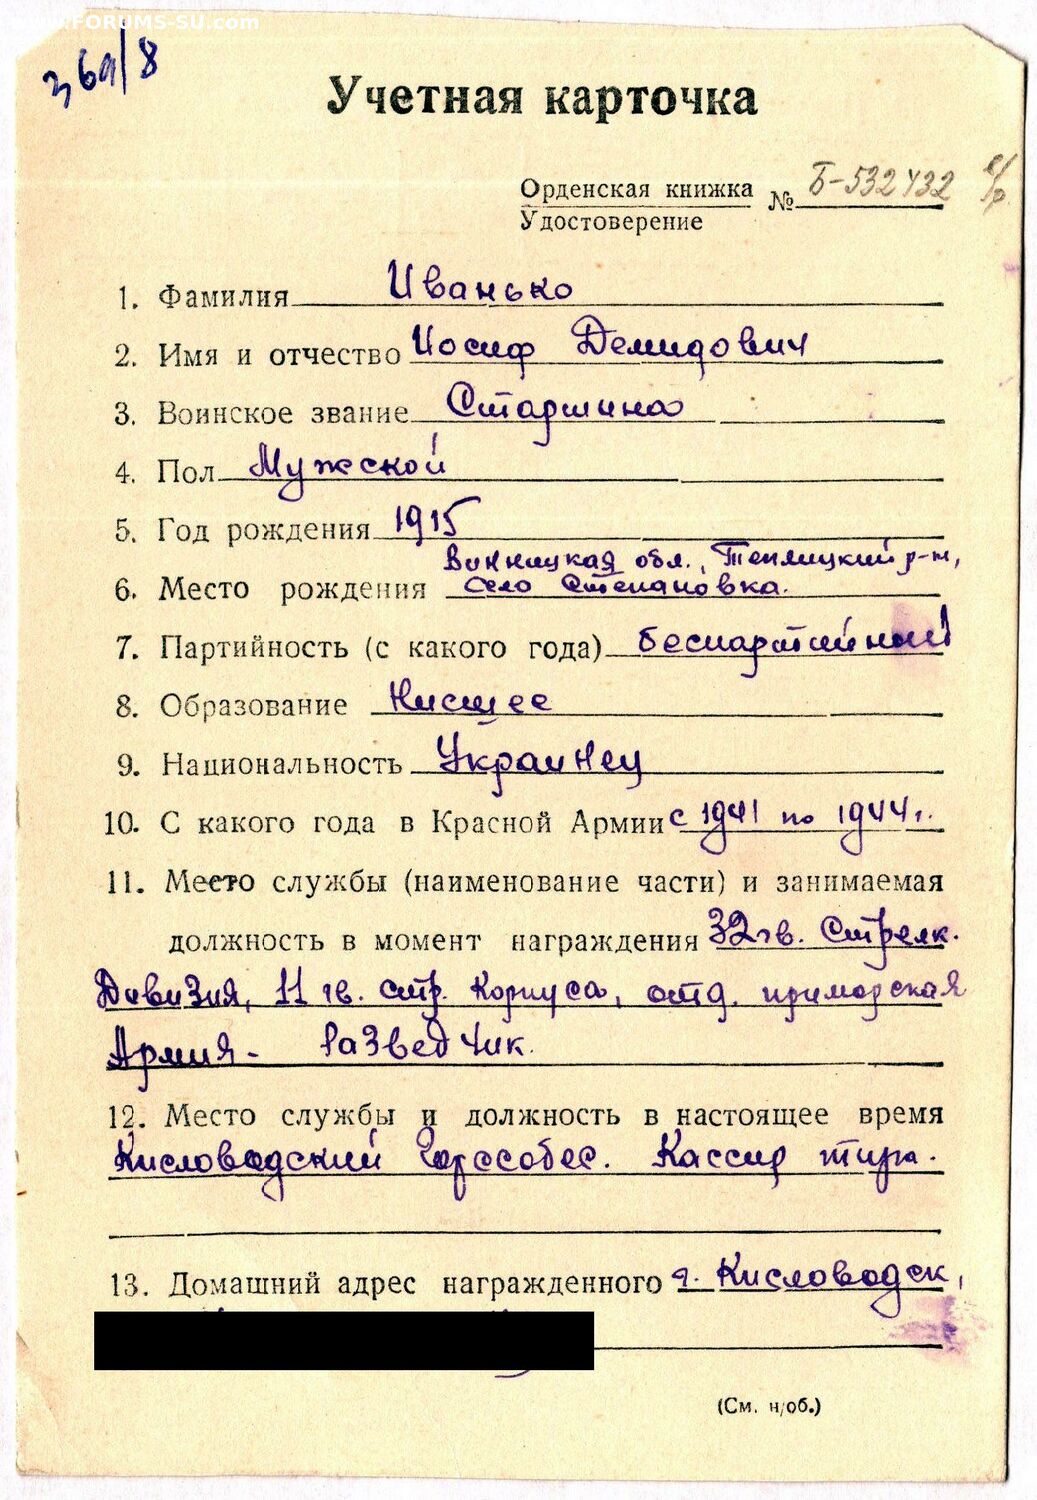 www.FORUMS-SU.com
369/8
Учетная карточка
Орденская книжка № Б-532432
Удостоверение
1. Фамилия Иванько
2. Имя и отчество Иосиф Демидович
3. Воинское звание Старшина
4. Пол Мужской
5. Год рождения 1915
Винницкая обл., Теплицкий р-н,
6. Место рождения село Степановка.
7. Партийность (с какого года) беспартийный
8. Образование Нисшее
9. Национальность Украинец
10. С какого года в Красной Армии с 1941 по 1944г.
11. Место службы (наименование части) и занимаемая
должность в момент награждения 32 гв. Стрелк.
Дивизия, 11 гв. стр. Корпуса, отд. приморская
Армия - Разведчик.
12. Место службы и должность в настоящее время
Кисловодский Горссобес. Кассир тира.
13. Домашний адрес награжденного г. Кисловодск,
(См. н/об.)